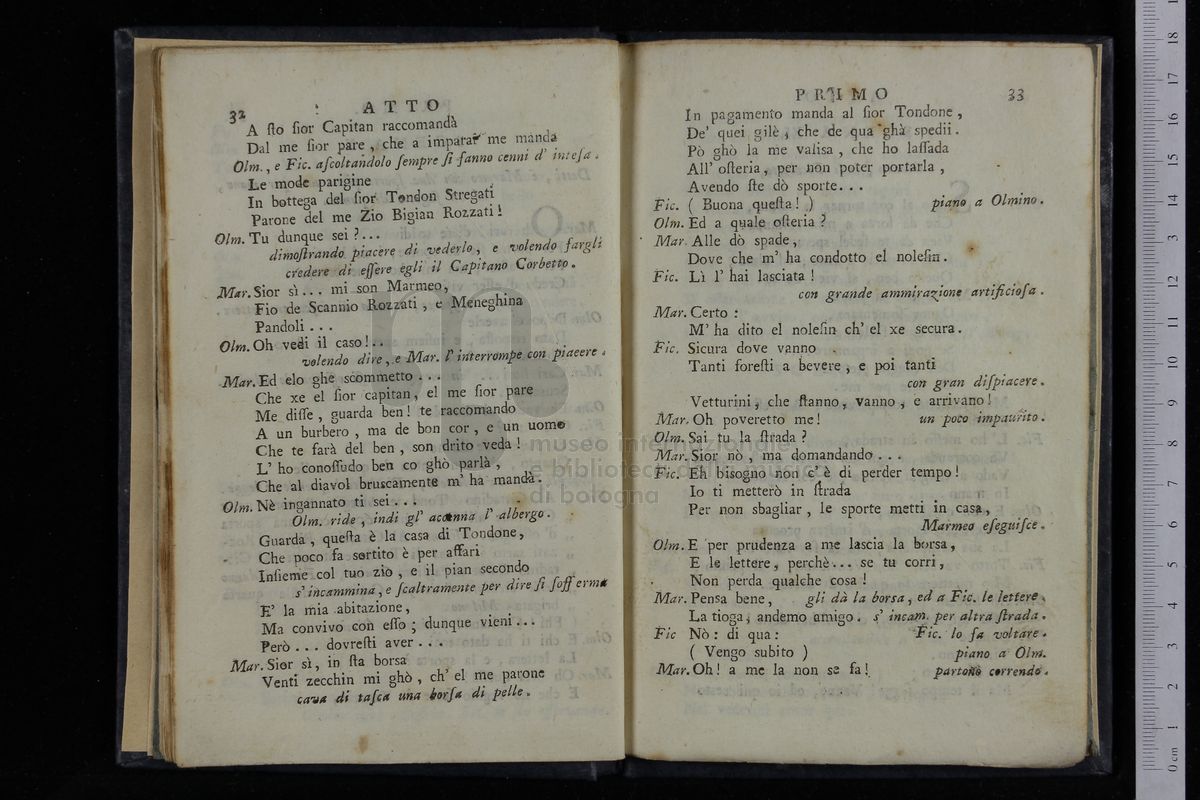 32 ATTO
A sto sior Capitan raccomandà
Dal me sior pare, che a imparar me manda
Olm., e Fic. ascoltandolo sempre si fanno cenni d' intesa.
Le mode parigine
In bottega del sior Tondon Stregati
Parone del me Zio Bigian Rozzati!
Olm. Tu dunque sei?...
dimostrando piacere di vederlo, e volendo fargli
credere di essere egli il Capitano Corbetto.
Mar. Sior sì... mi son Marmeo,
Fio de Scannio Rozzati, e Meneghina
Pandoli...
Olm. Oh vedi il caso!..
volendo dire, e Mar. l' interrompe con piacere.
Mar. Ed elo ghe scommetto...
Che xe el sior capitan, el me sior pare
Me disse, guarda ben! te raccomando
A un burbero, ma de bon cor, e un uomo
Che te farà del ben, son drito veda!
L' ho conossudo ben co ghò parlà,
Che al diavol bruscamente m' ha mandà.
Olm. Nè ingannato ti sei...
Olm. ride, indi gl' accenna l' albergo.
Guarda, questa è la casa di Tondone,
Che poco fa sortito è per affari
Insieme col tuo zio, e il pian secondo
s' incammina, e scaltramente per dire si sofferma
E' la mia abitazione,
Ma convivo con esso; dunque vieni...
Però... dovresti aver...
Mar. Sior sì, in sta borsa
Venti zecchin mi ghò, ch' el me parone
cava di tasca una borsa di pelle.
PRIMO 33
In pagamento manda al sior Tondone,
De' quei gilè, che de qua ghà spedii.
Pò ghò la me valisa, che ho lassada
All' osteria, per non poter portarla,
Avendo ste dò sporte...
Fic. ( Buona questa! ) piano a Olmino.
Olm. Ed a quale osteria?
Mar. Alle dò spade,
Dove che m' ha condotto el nolesin.
Fic. Lì l' hai lasciata!
con grande ammirazione artificiosa.
Mar. Certo:
M' ha dito el nolesin ch' el xe secura.
Fic. Sicura dove vanno
Tanti foresti a bevere, e poi tanti
con gran dispiacere.
Vetturini, che stanno, vanno, e arrivano!
Mar. Oh poveretto me! un poco impaurito.
Olm. Sai tu la strada?
Mar. Sior nò, ma domandando...
Fic. Eh bisogno non c' è di perder tempo!
Io ti metterò in strada
Per non sbagliar, le sporte metti in casa,
Marmeo eseguisce.
Olm. E per prudenza a me lascia la borsa,
E le lettere, perchè... se tu corri,
Non perda qualche cosa!
Mar. Pensa bene, gli dà la borsa, ed a Fic. le lettere.
La tioga, andemo amigo. s' incam. per altra strada.
Fic Nò: di qua: Fic. lo fa voltare.
( Vengo subito ) piano a Olm.
Mar. Oh! a me la non se fa! partono correndo.
museo internazionale
e biblioteca della musica
di bologna
0 cm 1 2 3 4 5 6 7 8 9 10 11 12 13 14 15 16 17 18